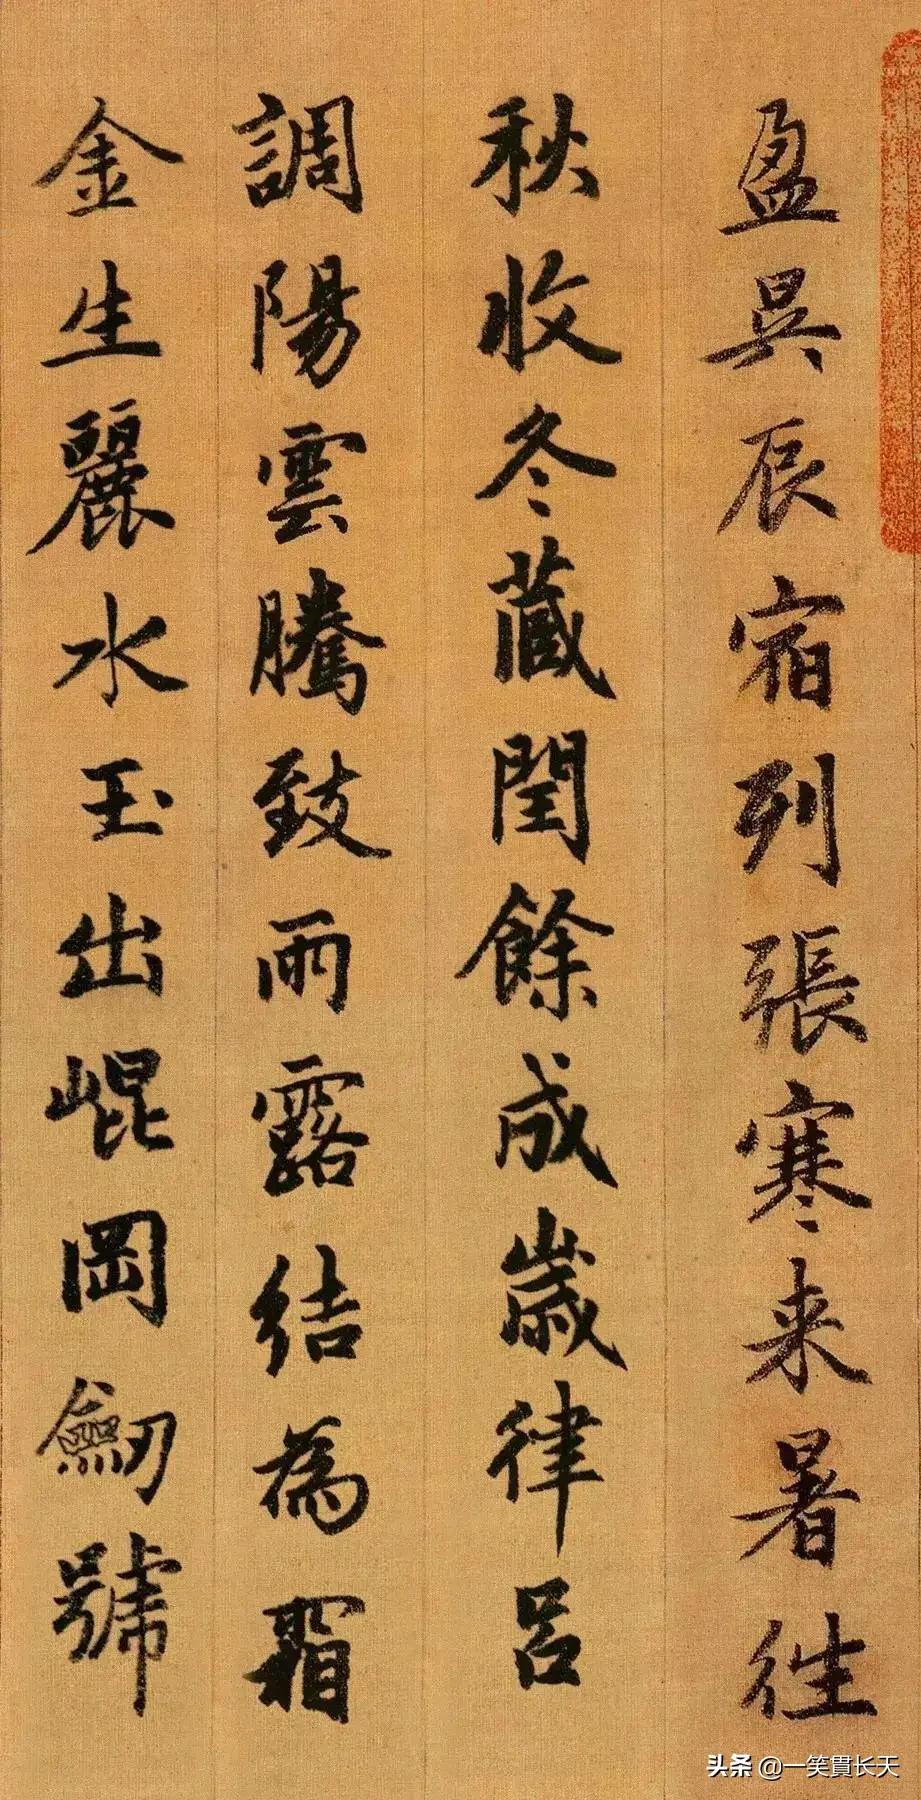 盈昃辰宿列張寒来暑往
秋收冬藏閏餘成歲律呂
調陽雲騰致雨露結為霜
金生麗水玉出崐岡劒號
头条 @一笑貫长天